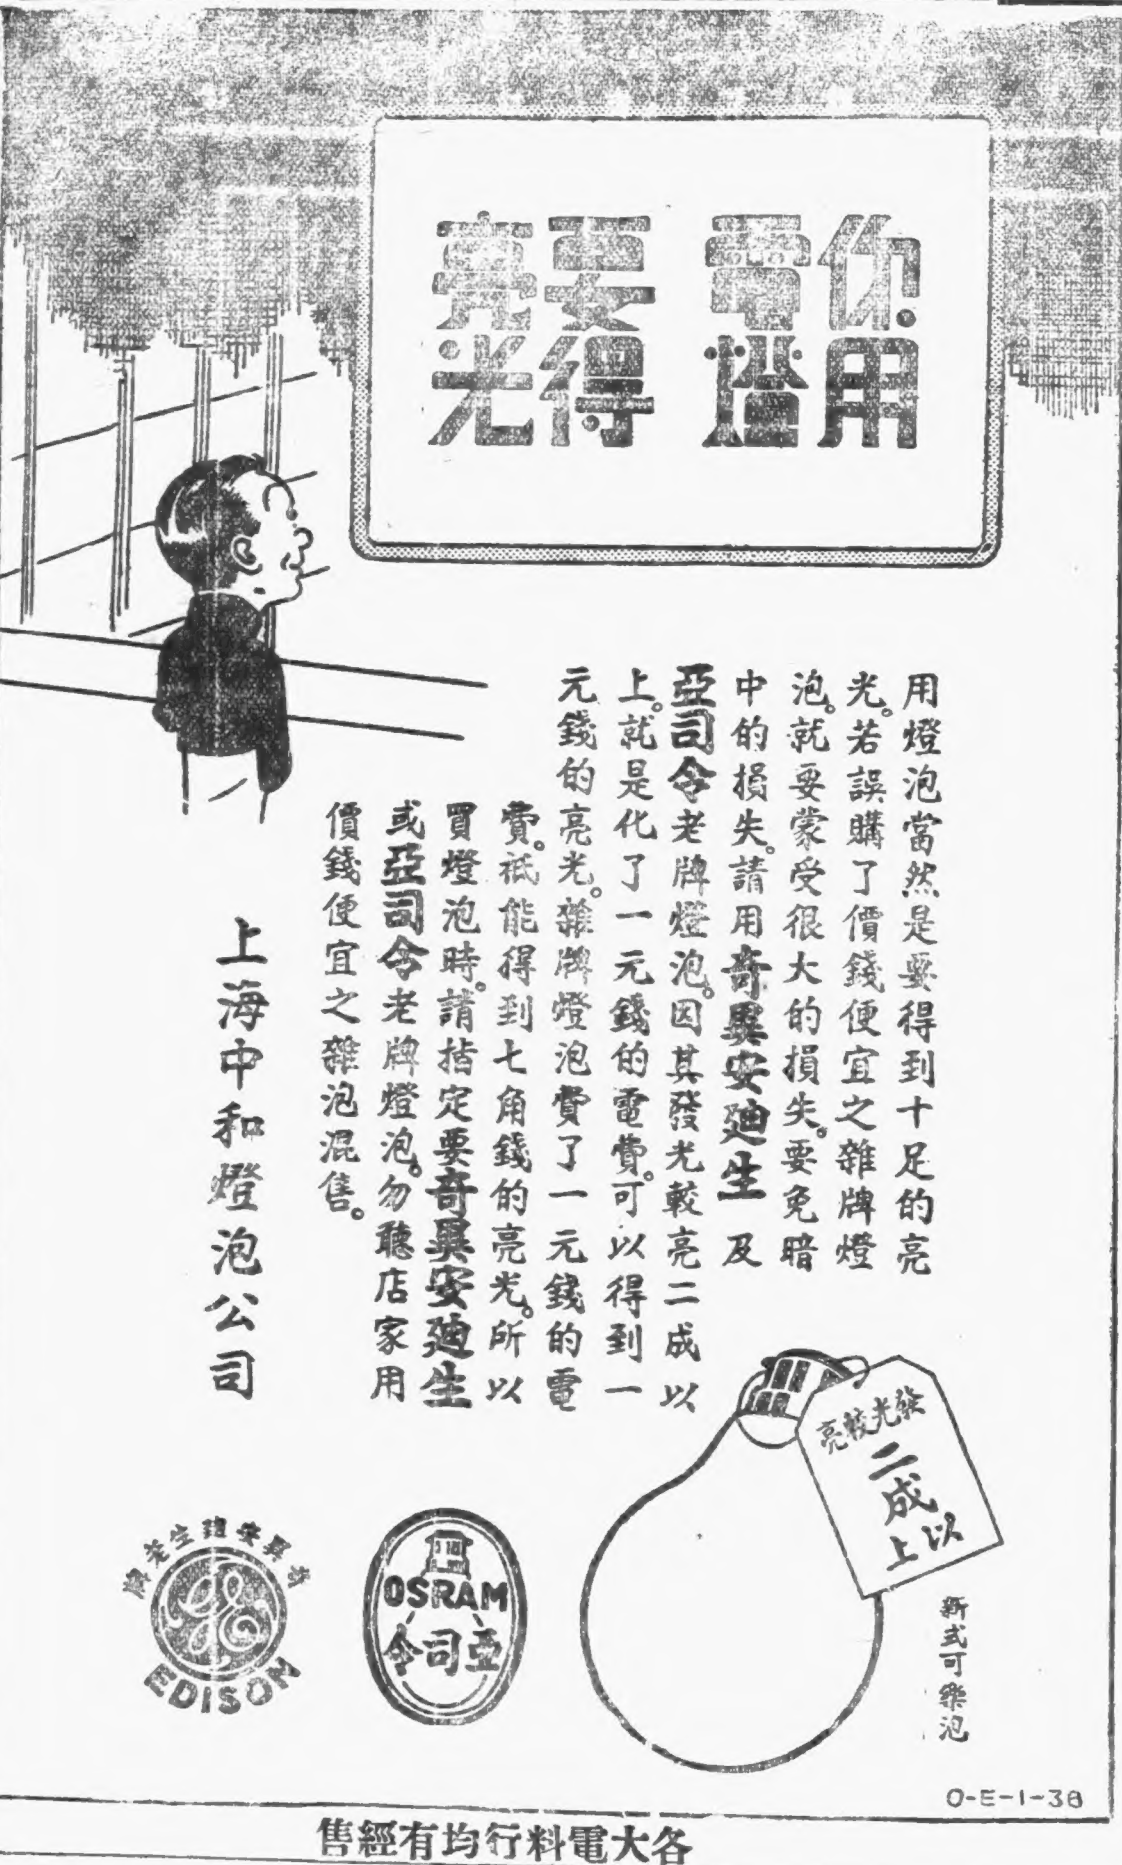 你用
電燈
要得
亮光
用燈泡當然是要得到十足的亮
光。若誤購了價錢便宜之雜牌燈
泡。就要蒙受很大的損失。要免暗
中的損失。請用奇異安廸生及
亞司令老牌燈泡。因其發光較亮二成以
上。就是化了一元錢的電費。可以得到一
元錢的亮光。雜牌燈泡費了一元錢的電
費。祇能得到七角錢的亮光。所以
買燈泡時。請指定要奇異安廸生
或亞司令老牌燈泡。勿聽店家用
價錢便宜之雜泡混售。
上海中和燈泡公司
發光較亮
二成
以上
新式可樂泡
OSRAM
亞司令
奇異安廸生老牌
GE
EDISON
O-E-1-38
各大電料行均有經售